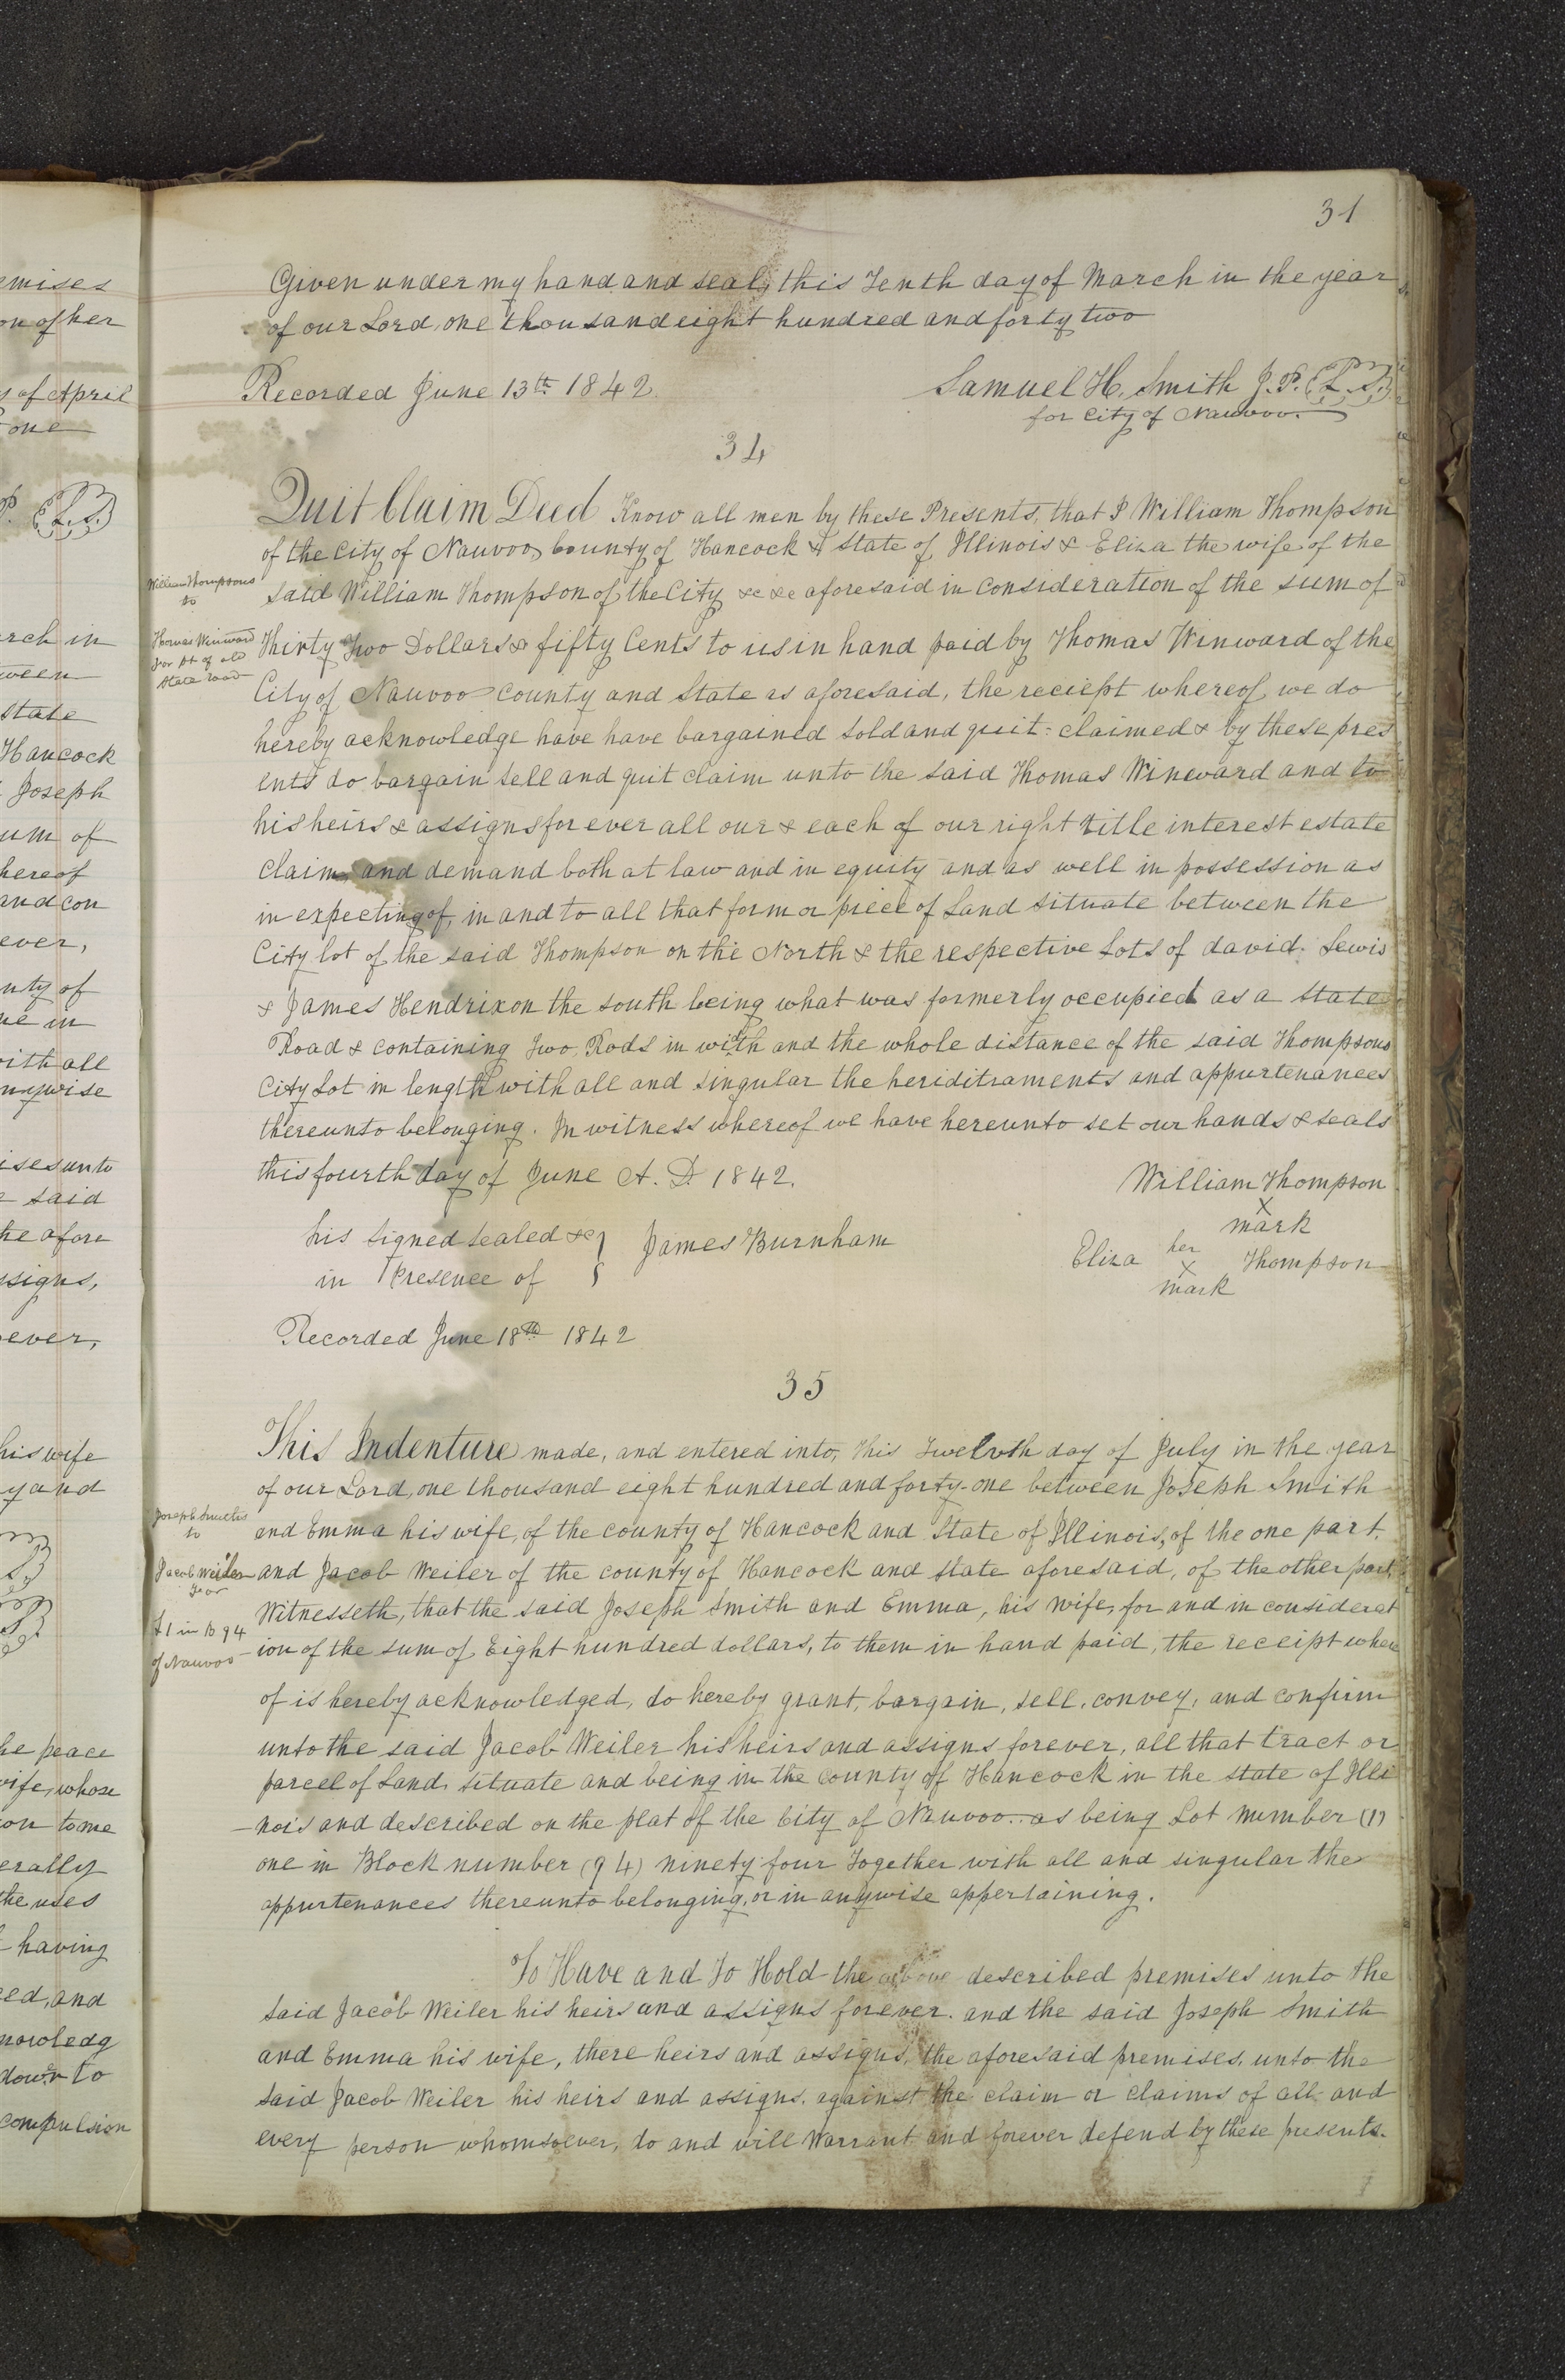 emises
on of her
of April
one
P. (L.S.)
arch in
ween
State
Hancock
Joseph
um of
hereof
and con
ever,
nty of
ne in
with all
nywise
ises unto
said
he afore
ssigns,
ever,
his wife
y and
he peace
wife, whose
on to me
erally
the uses
having
ed, and
nowledg
down to
compulsion
31
Given under my hand and seal, this Tenth day of March in the year
of our Lord, one thousand eight hundred and forty two
Recorded June 13th 1842.
Samuel H. Smith J.P. (L.S.)
for City of Nauvoo.
34
William Thompsons
to
Thomas Winward
for pt of old
State road
Quit Claim Deed Know all men by these Presents, that I William Thompson
of the City of Nauvoo, County of Hancock & State of Illinois & Eliza the wife of the
said William Thompson of the City &c &c aforesaid in consideration of the sum of
Thirty Two Dollars & fifty Cents to us in hand paid by Thomas Winward of the
City of Nauvoo County and State as aforesaid, the reciept whereof we do
hereby acknowledge have have bargained sold and quit=claimed & by these pres
ents do bargain sell and quit claim unto the said Thomas Wineward and to
his heirs & assigns for ever all our & each of our right title interest estate
claim, and demand both at law and in equity and as well in possession as
in expecting of, in and to all that form or piece of Land situate between the
City lot of the said Thompson on the North & the respective Lots of david. Lewis
& James Hendrixon the south being what was formerly occupied as a State
Road & containing Two Rods in width and the whole distance of the said Thompsons
City Lot in length with all and singular the heriditraments and appurtenances
thereunto belonging. In witness whereof we have hereunto set our hands & seals
this fourth day of June A. D. 1842.
William Thompson
X
mark
his signed sealed &c
in Presence of
James Burnham
her
Eliza X Thompson
mark
Recorded June 18th 1842
35
Joseph Smith
to
Jacob Weiler
for
L 1 in B 94
of Nauvoo
This Indenture made, and entered into, this Twelvth day of July in the year
of our Lord, one thousand eight hundred and forty-one between Joseph Smith
and Emma his wife, of the county of Hancock and State of Illinois, of the one part,
and Jacob Weiler of the county of Hancock and state aforesaid, of the other part,
Witnesseth, that the said Joseph Smith and Emma, his wife, for and in considerat
ion of the sum of Eight hundred dollars, to them in hand paid, the receipt where
of is hereby acknowledged, do hereby grant, bargain, sell, convey, and confirm
unto the said Jacob Weiler his heirs and assigns forever, all that tract or
parcel of Land, situate and being in the county of Hancock in the state of Illi
nois and described on the plat of the City of Nauvoo.. as being Lot number (1)
one in Block number (94) ninety four Together with all and singular the
appurtenances thereunto belonging, or in anywise appertaining.
To Have and To Hold the above described premises unto the
said Jacob Weiler his heirs and assigns forever. and the said Joseph Smith
and Emma his wife, there heirs and assigns, the aforesaid premises, unto the
said Jacob Weiler his heirs and assigns, against the claim or claims of all and
every person whomsoever, do and will Warrant and forever defend by these presents.